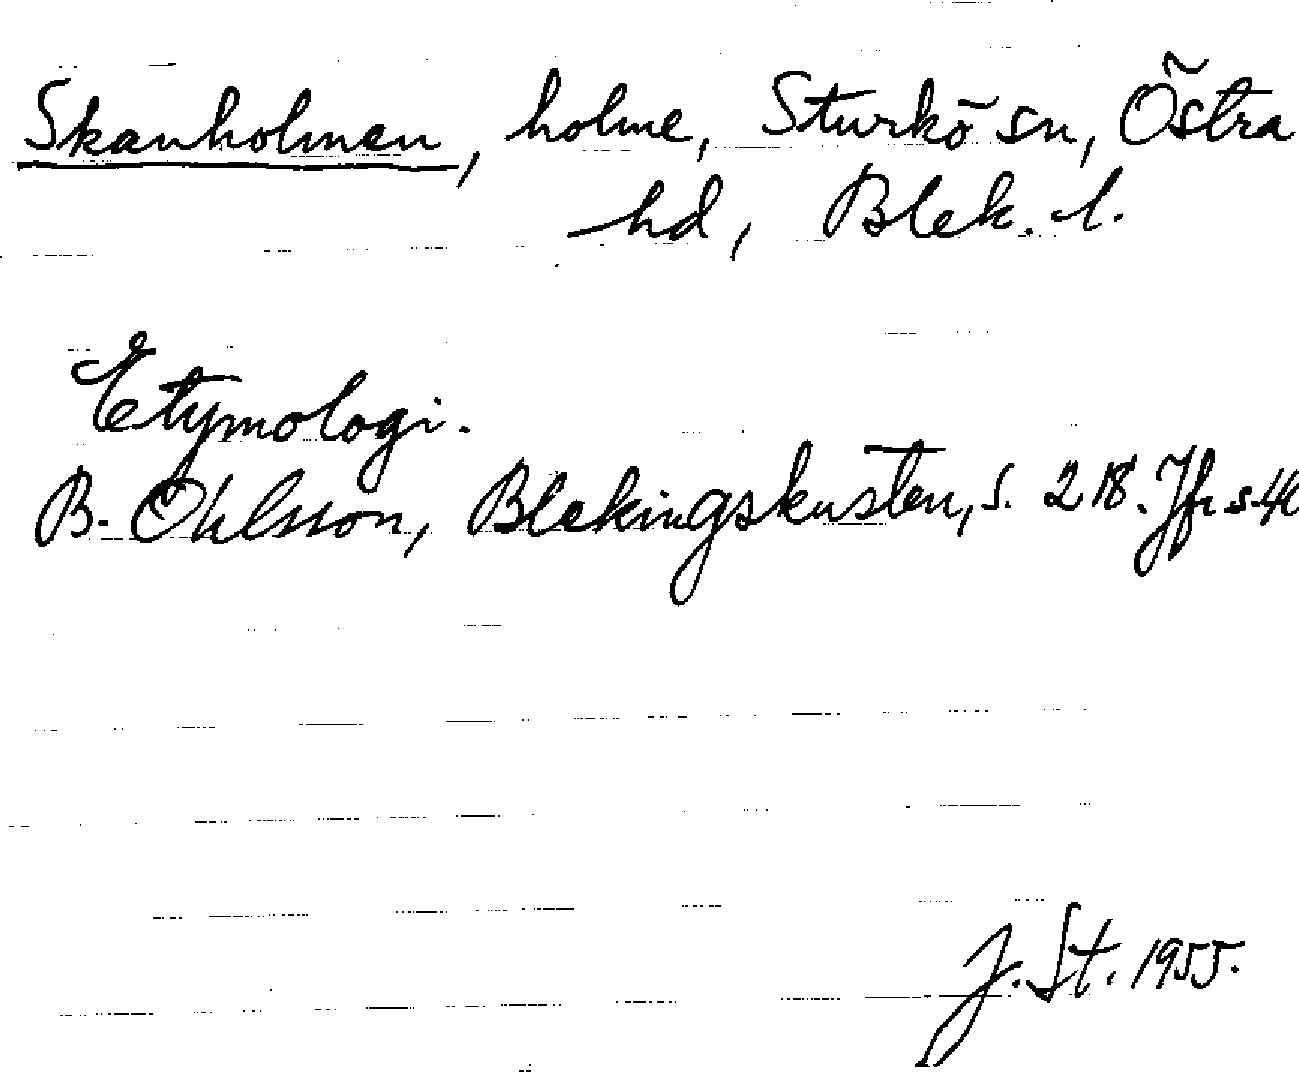 Skanholmen, holme, Sturkö sn, Östra
hd, Blek. l.
Etymologi.
B. Ohlsson, Blekingskusten, s. 218. Jfr s.
J. St. 1955.